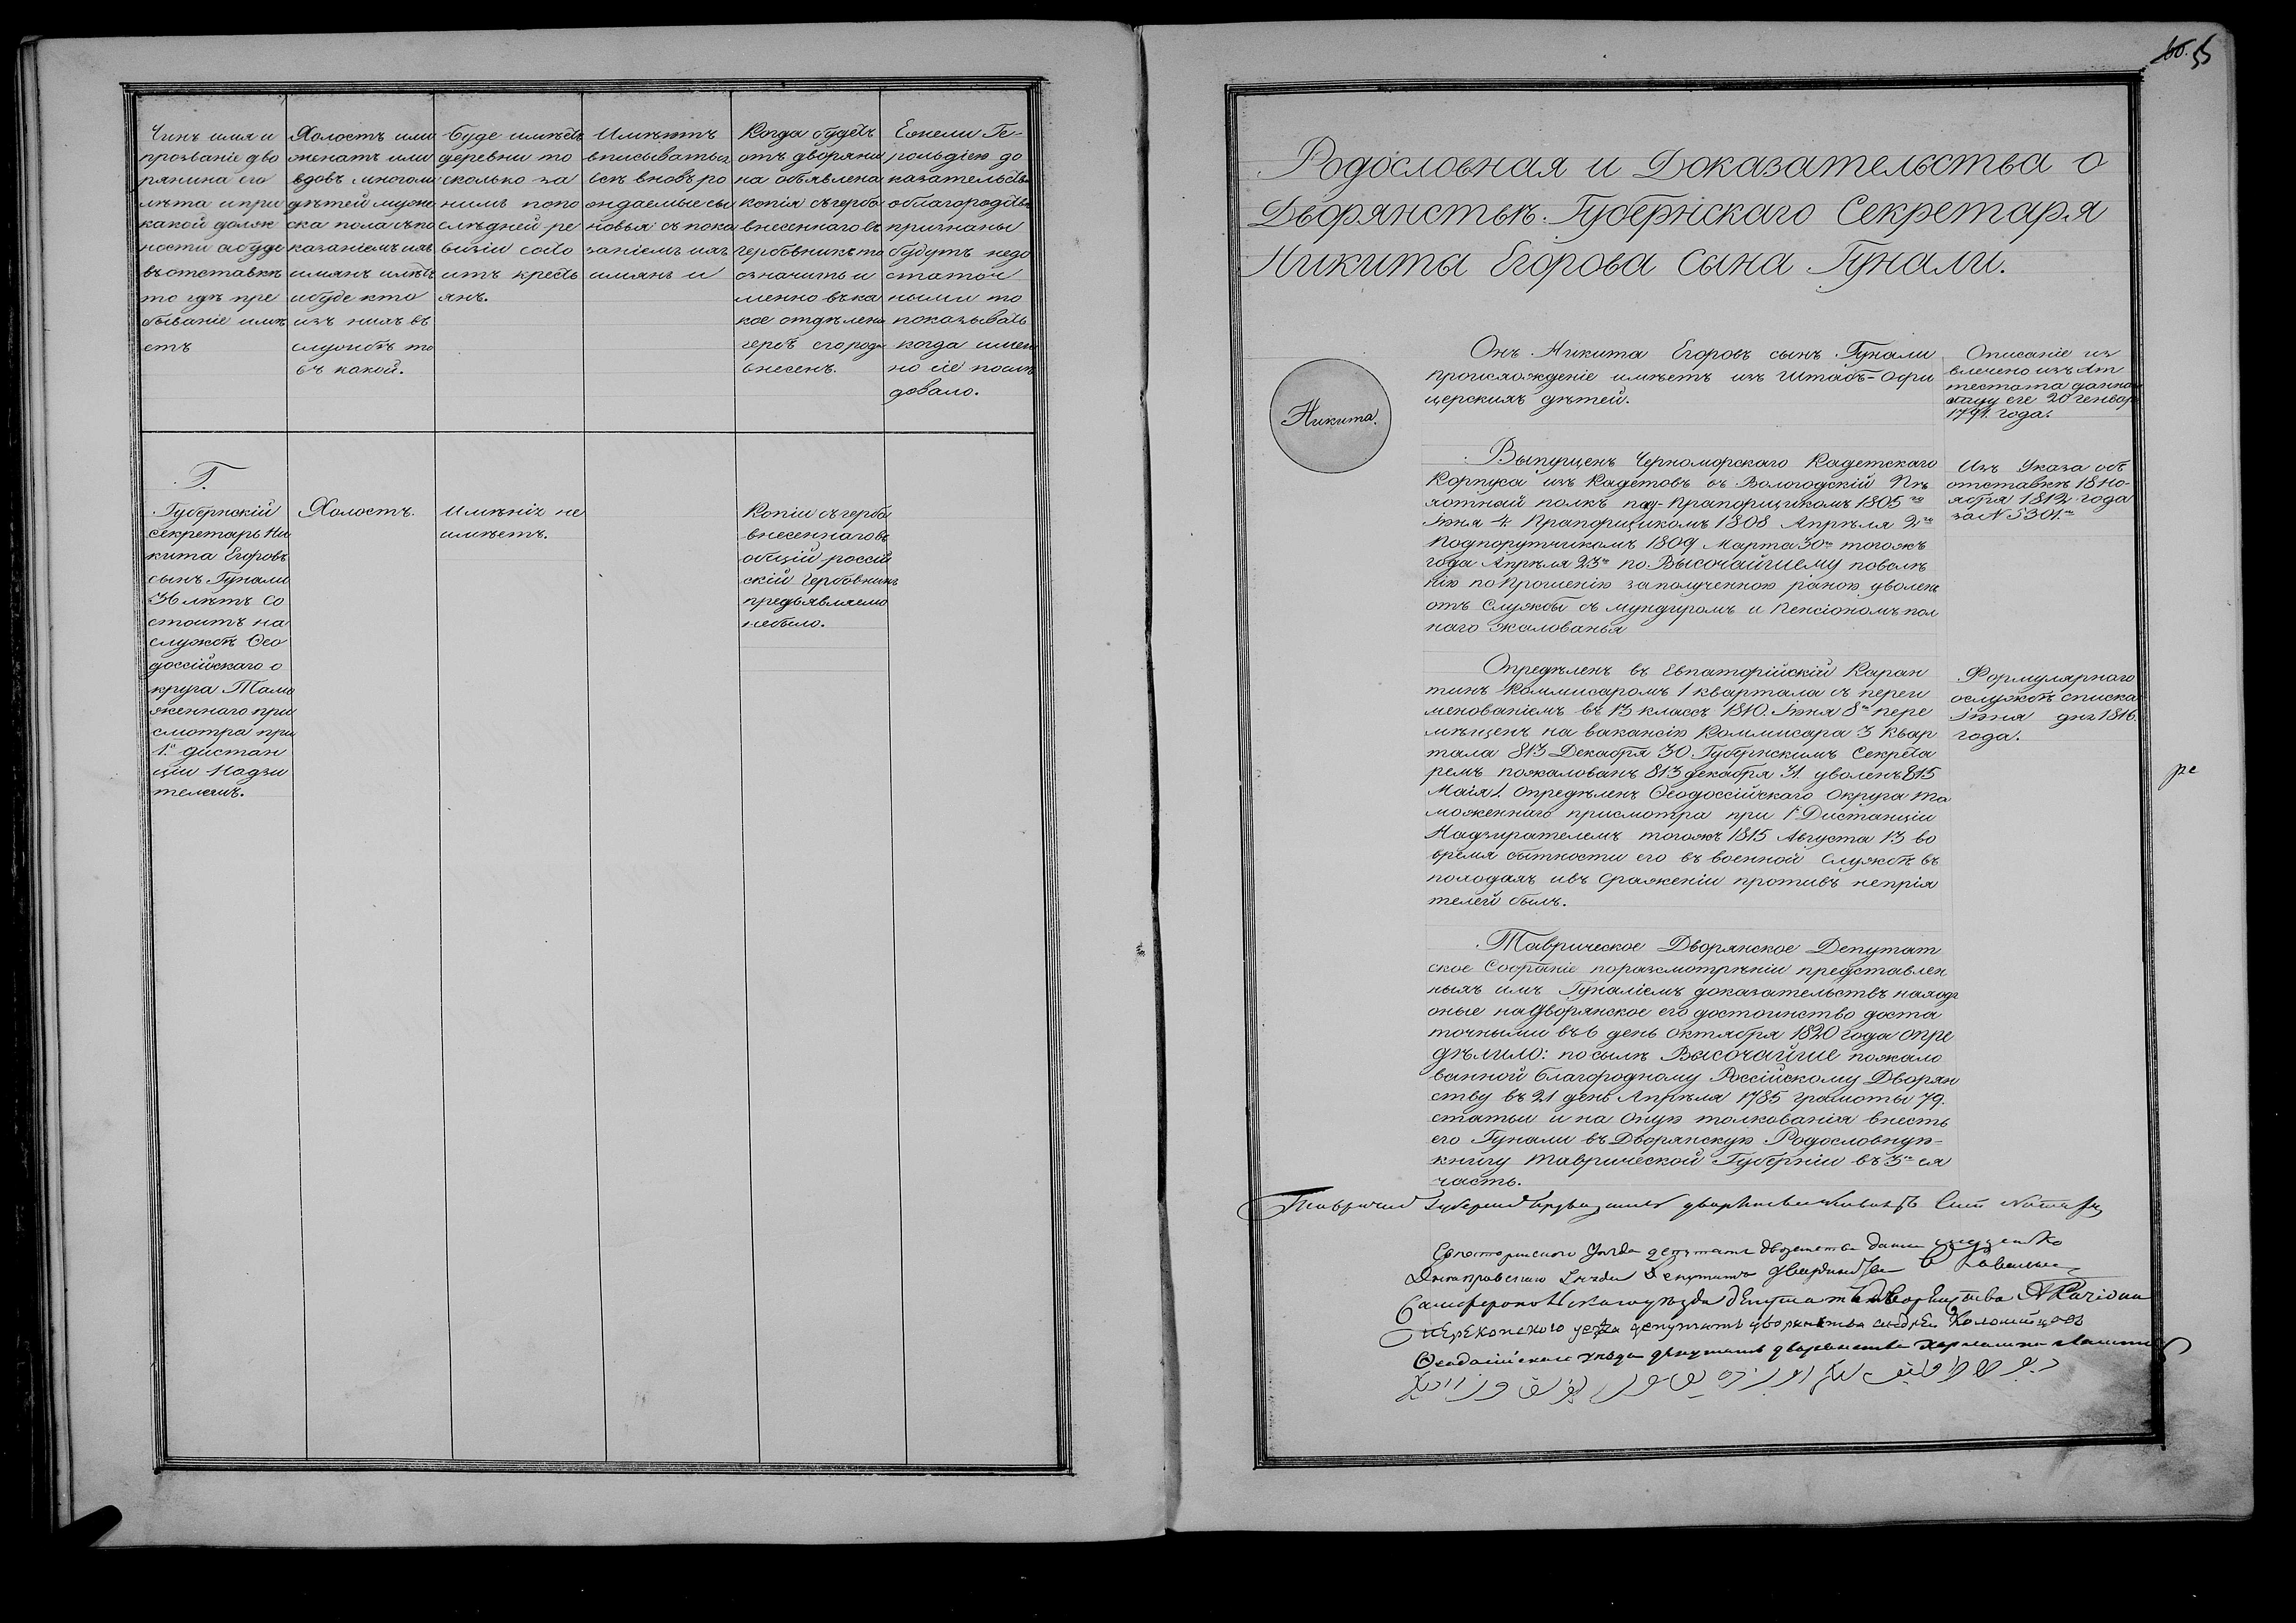 Чинъ имя и
прозваніе дво
рянина его
лѣта и при
какой долж
ности абуде
въ отставкѣ
то гдѣ пре
бываніе имѣ
етъ
Холостъ или
женатъ или
вдовъ многоли
дѣтей муже
ска пола съпо
казаніемъ ихъ
имянъ
ибуде кто
изъ нихъ въ
службѣ то
въ какой.
Буде имѣетъ
деревни то
сколько за
нимъ попо
слѣдней ре
визіи состо
итъ кресть
янъ.
Имѣютъ
вписыватьця
всѣ вновь ро
ждаемые сы
новья съ пока
заніемъ ихъ
имянъ и
Когда будетъ
отъ дворяни
на объявлена
копія съгерба
внесеннаго въ
гербовникъ то
означить и
менно въ ка
кое отдѣлені
гербъ егорода
внесенъ.
Ежели Ге-
рольдіею до
казательств
облагородств
признаны
будутъ недо
статоч
ными то
показывать
когда имен
но сіе послѣ
довало.
Г.
Губернскій
Секретарь Ни
кита Егоровъ
сынъ Гунали
36 лѣтъ Со
стоитъ на
службѣ Ѳео
доссійскаго о
круга Тамо
женнаго при
смотра при
1й дистан
ціи Надзи
телемъ.
Холостъ.
Имѣнія не
имѣетъ.
Копіи съ герба
внесеннаго въ
общій россій
скій Гербовникъ
предъявляемо
небыло.
55
Родословная и Доказательства о
Дворянствѣ. Губернскаго Секретаря
Никиты Егорова сына Гунали.
Никита.
Онъ Никита Егоровъ сынъ Гунали
происхожденіе имѣетъ изъ Штабъ-Офи
церскихъ дѣтей.
Описаніе из
влечено изъ Ат
тестата даннаго
отцу его 20 генвар
1791. года.
Выпущенъ Черноморскаго Кадетскаго
Корпуса изъ Кадетовъ въ Вологодскій Пѣ
хотный полкъ под-Прапорщикомъ 1805го
Іюня 4. Прапорщикомъ 1808 Апрѣля 2го
Подпорутчикомъ 1809 Марта 30го тогожъ
года Апрѣля 23го по Высочайшему повелѣ
нію по Прошенію заполученною раною уволенъ
отъ Службы съ мундиромъ и Пенсіономъ пол
наго жалованья
Изъ Указа объ
отставкѣ 18 но-
ября 1812 года
за N 5301.мъ
Опредѣленъ въ Евпаторійскій Каран
тинъ Коммисаромъ 1 квартала съ переи
менованіемъ въ 13 классъ 1810. Іюня 8го пере
мѣщенъ на вакансію Коммисара 3 Квар
тала 813 Декабря 30. Губернскимъ Секрета
ремъ пожалованъ 813 декабря 31. уволенъ 815
Маія 1. Опредѣленъ Ѳеодоссійскаго Округа та
моженнаго присмотра при 1й Дистанціи
Надзирателемъ тогожъ 1815 Августа 13 во
время бытности его въ военной Службѣ въ
походахъ ивъ Сраженіи противъ непрія
телей былъ.
Формулярнаго
ослужбѣ списка
Іюня дня 1816.
года.
Таврическое Дворянское Депутат
ское Собраніе поразсмотрѣніи представлен
ныхъ имъ Гуналіемъ доказательствъ находя
оные надворянское его достоинство доста
точными въ 6 день Октября 1820 года опре
дѣлило: по силѣ Высочайше пожало
ванной Благородному Россійскому Дворян
ству въ 21 день Апрѣля 1785 грамоты 79.
статьи и на Оную толкованія внесть
его Гунали въ Дворянскую Родословную-
книгу таврической Губерніи въ 3ю ея
часть.
Уѣзда депутатъ дворянства
Днепровскаго Уѣзда Депутатъ Дворянства
Симферопольскаго уѣзда депутатъ Дворянства
Перекопскаго уезда депутатъ дворянства Андрей Коломийцовъ
Ѳеодосійскаго уѣзда депутатъ дворянства